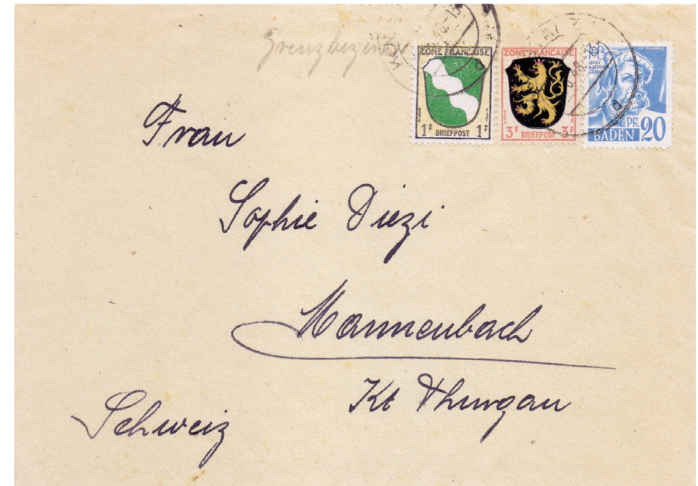 Grenzbezirk
ZONE FRANÇAISE
1F BRIEFPOST 1F
ZONE FRANÇAISE
3F BRIEFPOST 3F
PF.
BADEN 20
Frau
Sophie Diezi
Mannenbach
Kt Thurgau
Schweiz